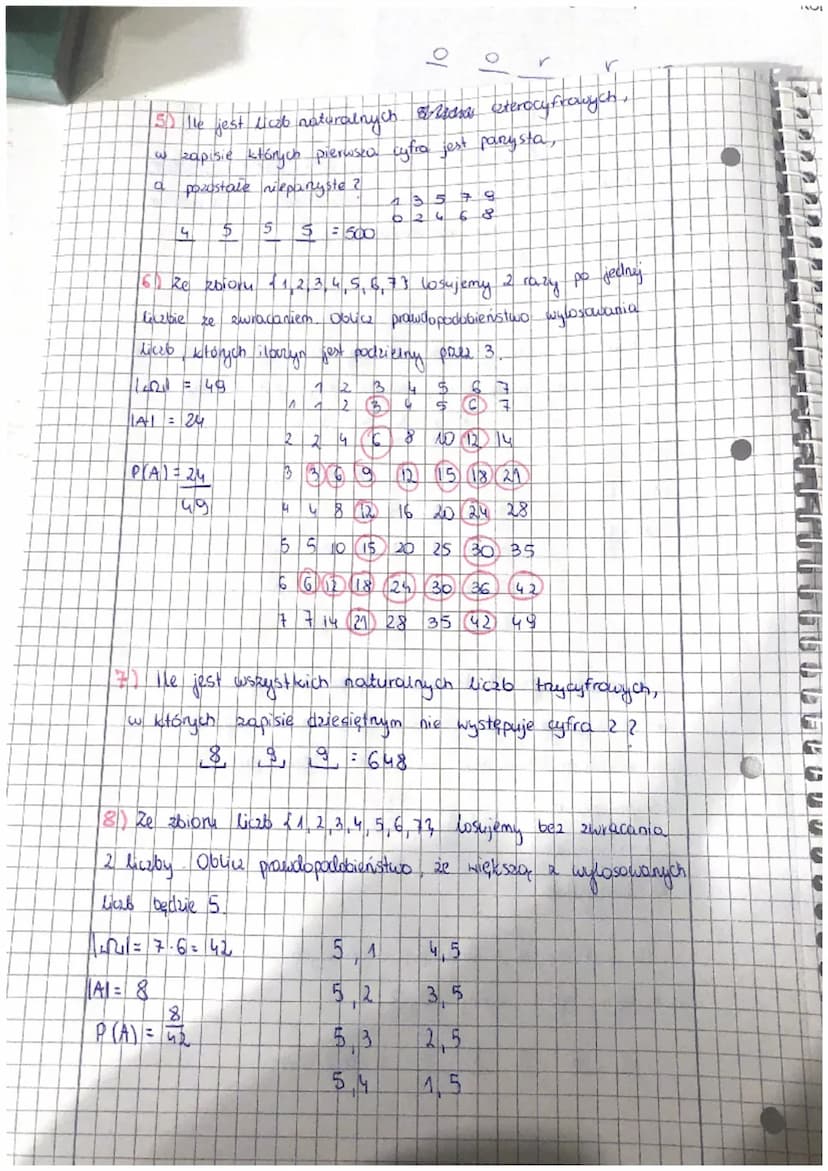 o o r r
5) Ile jest liczb naturalnych czterocyfrowych,
w zapisie których pierwsza cyfra jest parzysta,
a pozostałe nieparzyste?
1 3 5 7 9
0 2 4 6 8
4 5 5 5 = 500
6) Ze zbioru {1,2,3,4,5,6,7} losujemy 2 razy po jednej
liczbie ze zwracaniem. Oblicz prawdopodobieństwo wylosowania
liczb, których iloczyn jest podzielny przez 3.
|Ω| = 49
|A| = 24
P(A) = 24
49
1 2 3 4 5 6 7
1 1 2 3 4 5 6 7
2 2 4 6 8 10 12 14
3 3 6 9 12 15 18 21
4 4 8 12 16 20 24 28
5 5 10 15 20 25 30 35
6 6 12 18 24 30 36 42
7 7 14 21 28 35 42 49
7) Ile jest wszystkich naturalnych liczb trzycyfrowych,
w których zapisie dziesiętnym nie występuje cyfra 2?
8 9 9 = 648
8) Ze zbioru liczb {1,2,3,4,5,6,7} losujemy bez zwracania
2 liczby. Oblicz prawdopodobieństwo, że większą z wylosowanych
liczb będzie 5.
|Ω| = 7·6 = 42
|A| = 8
P(A) = 8
42
5,1 4,5
5,2 3,5
5,3 2,5
5,4 1,5